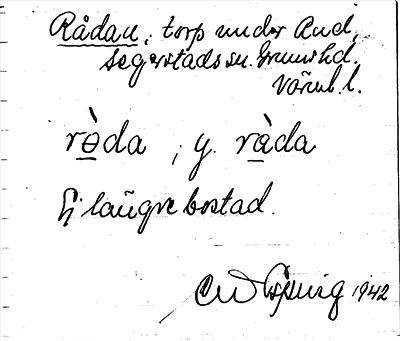 Rådau, torp under Rud,
Segerstads sn. Grums hd.
Värml. l.
rò̱da ; y. rà̱da
Ej längre bostad.
1942